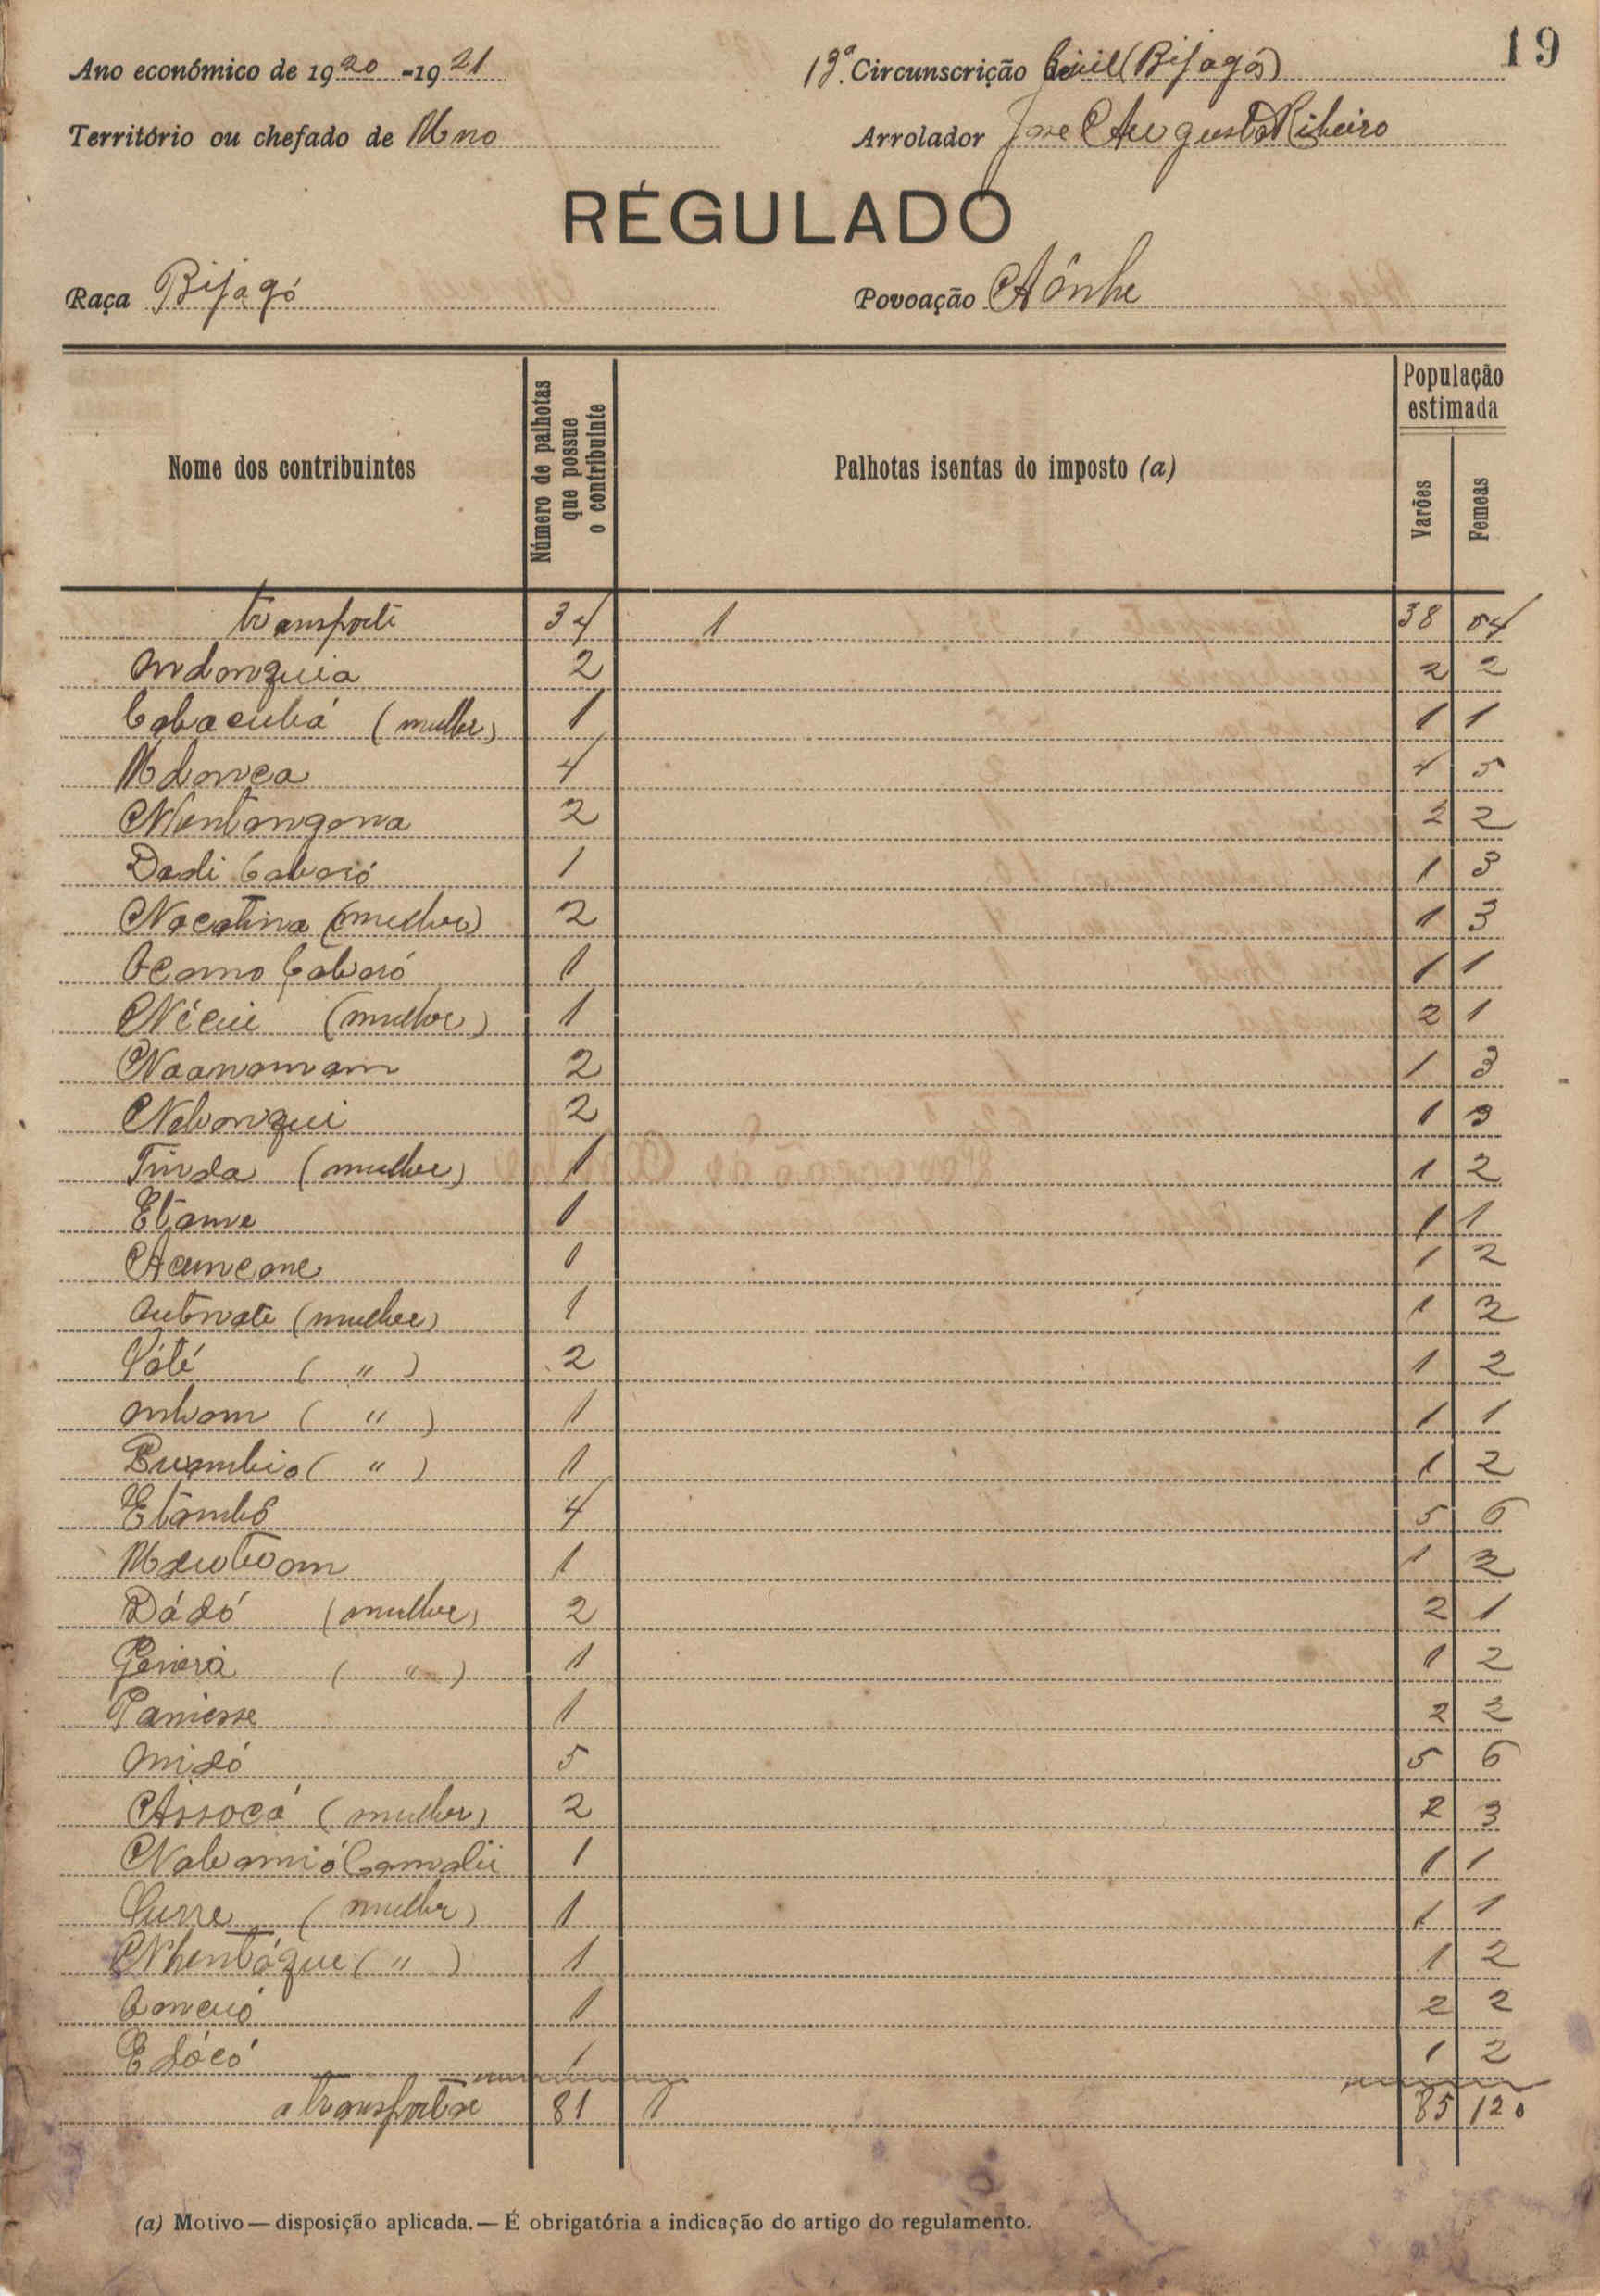 19
Ano económico de 1920-1921
13ª Circunscrição Civil (Bijagós)
Território ou chefado de Uno
Arrolador José Augusto Ribeiro
RÉGULADO
Raça Bijagó
Povoação Aônhe
Nome dos contribuintes
Número de palhotas que possue o contribuinte
Palhotas isentas do imposto (a)
População estimada
Varões
Femeas
Transporte 34 1 38 54
Ondonquia 2 2 2
Cabacubá (mulher) 1 1 1
Mdonca 4 4 5
Nentongona 2 2 2
Dadi Caboró 1 1 3
Nocotina (mulher) 2 1 3
Ocomo Caboró 1 1 1
Nécui (mulher) 1 2 1
Naanomam 2 1 3
Nobonqui 2 1 3
Tinda (mulher) 1 1 2
Etome 1 1 1
1 1 2
(mulher) 1 1 2
( " ) 2 1 2
( " ) 1 1 1
( " ) 1 1 2
Etombó 4 5 6
1 1 2
Dádó (mulher) 2 2 1
( " ) 1 1 2
1 2 2
Onidó 5 5 6
Assocá (mulher) 2 2 3
1 1 1
(mulher) 1 1 1
Nhentóque ( " ) 1 1 2
1 2 2
Edócó 1 1 2
a transportar 81 1 85 120
(a) Motivo — disposição aplicada. — É obrigatória a indicação do artigo do regulamento.